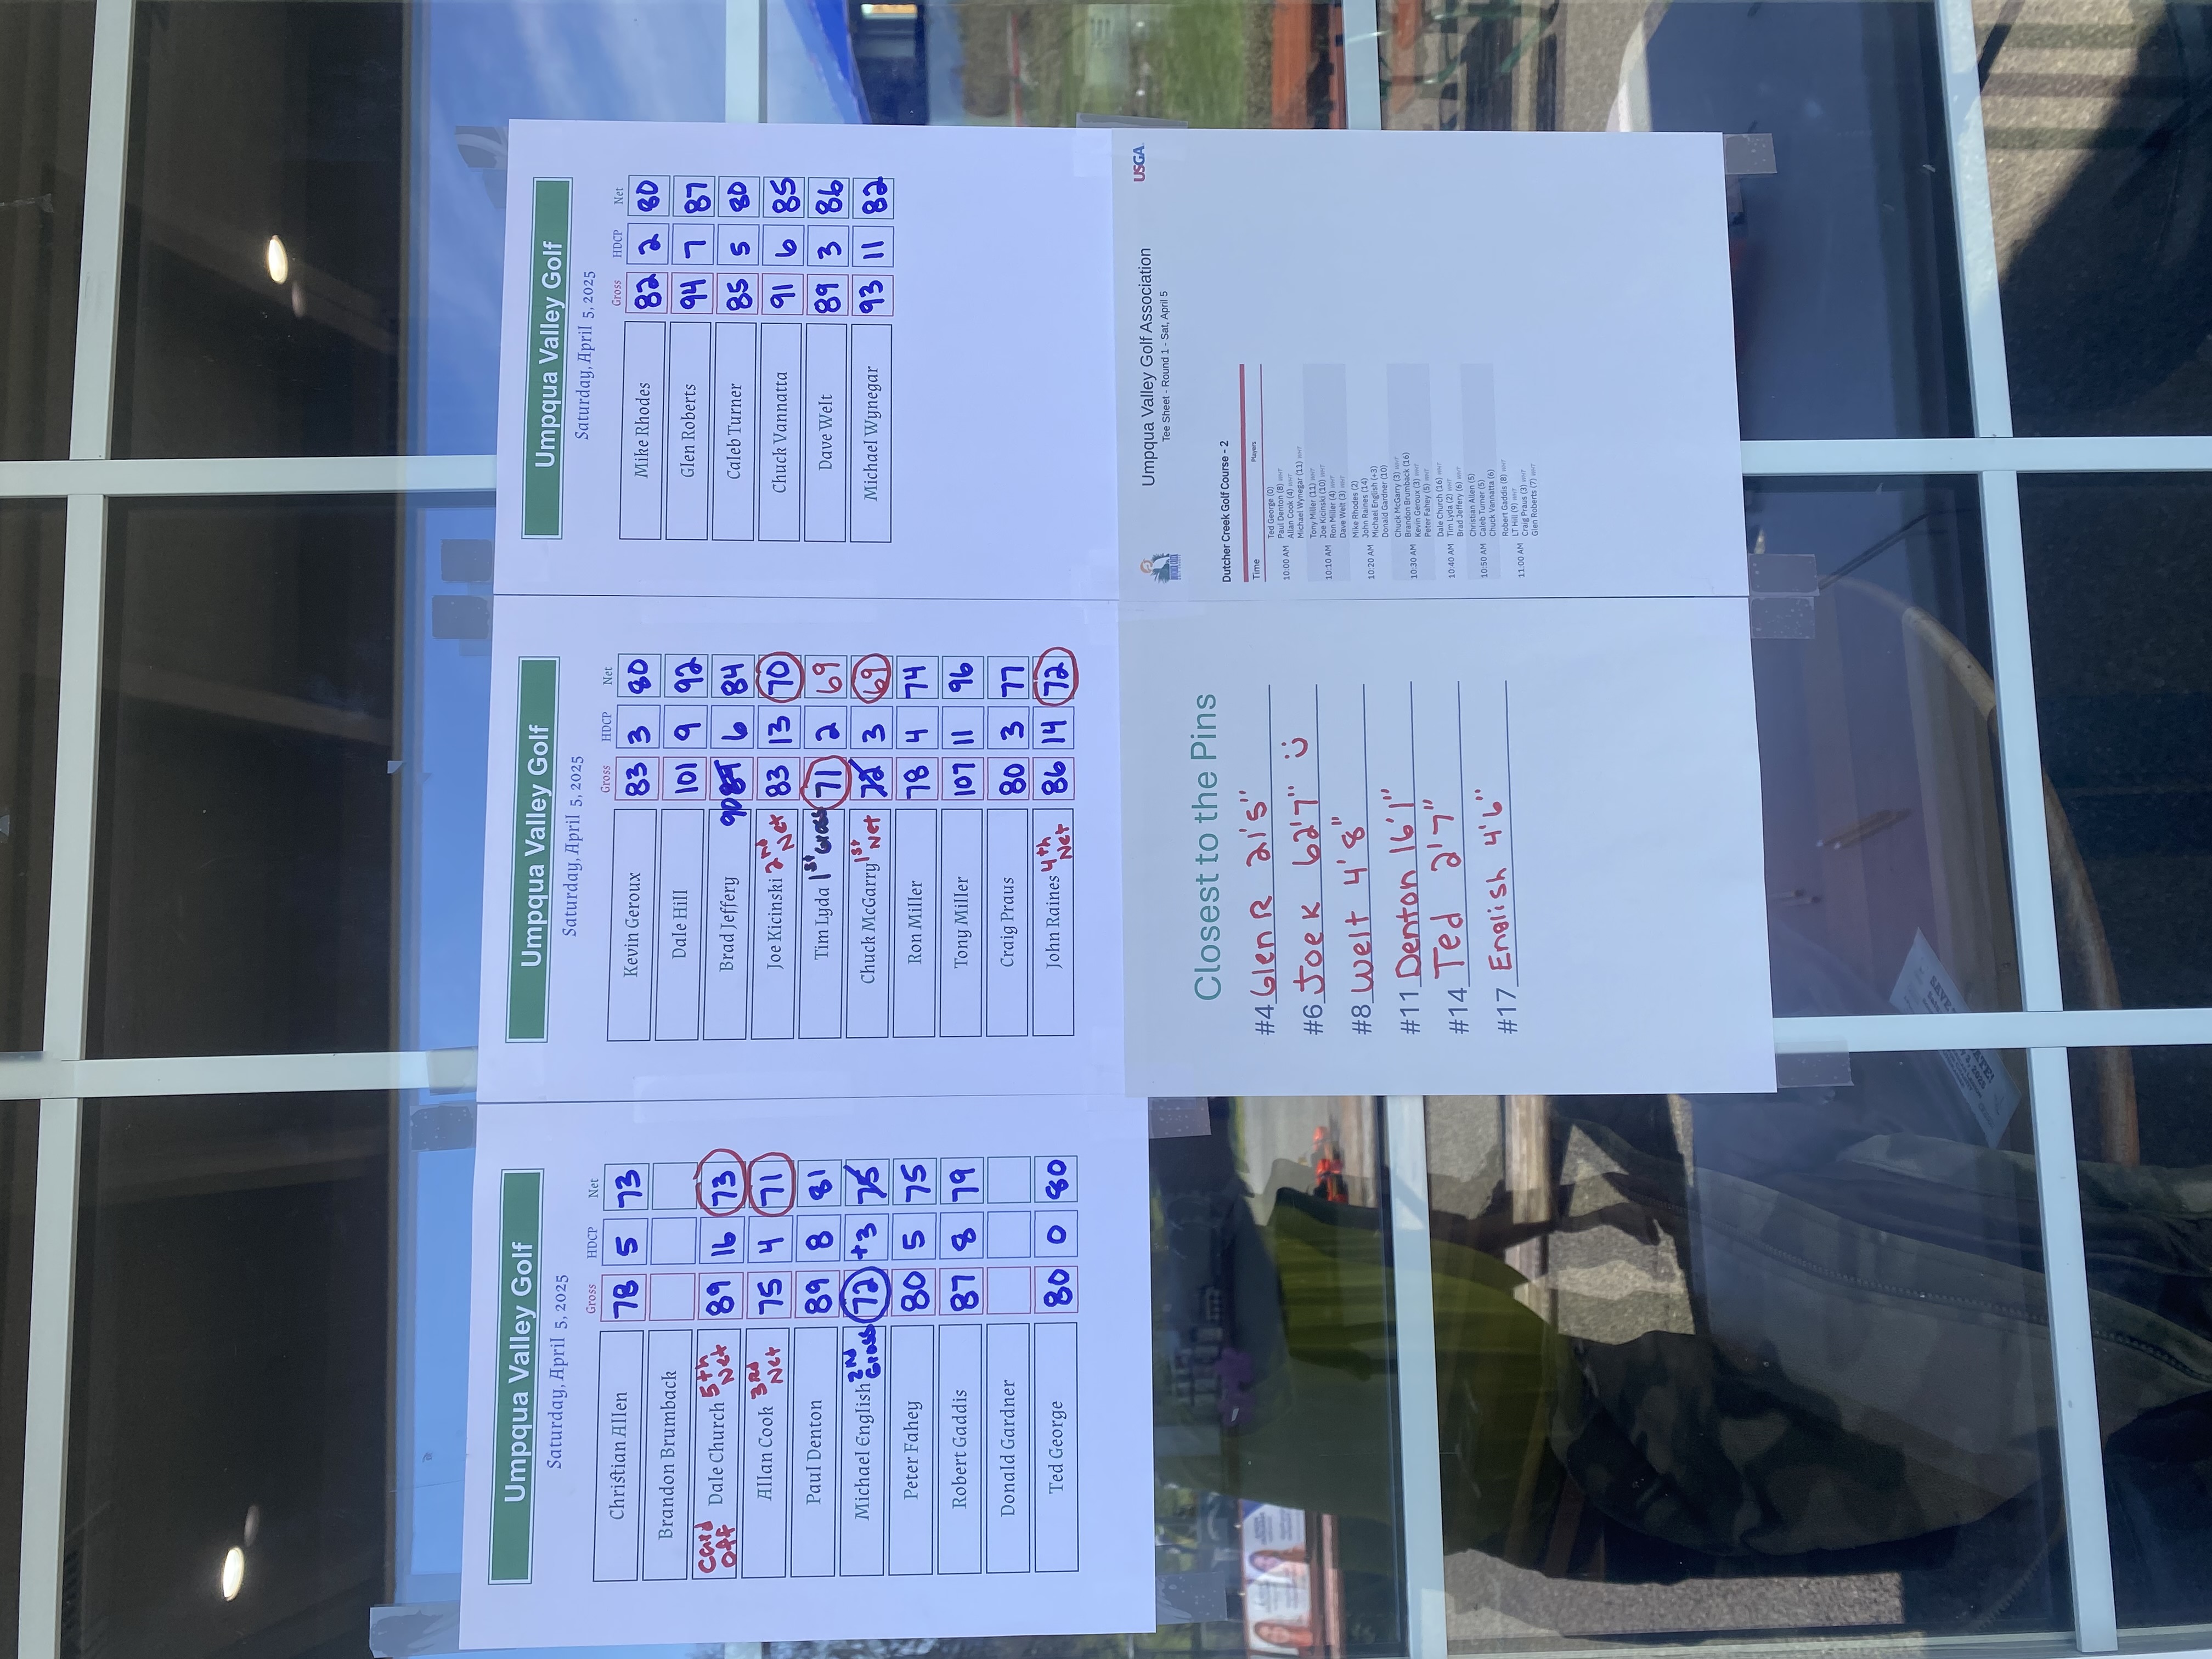 Umpqua Valley Golf
Saturday, April 5, 2025
Gross HDCP Net
Christian Allen 78 5 73
Brandon Brumback
Card Off Dale Church 5th Net 89 16 73
Allan Cook 3RD Net 75 4 71
Paul Denton 89 8 81
Michael English 2ND Gross 72 +3 75
Peter Fahey 80 5 75
Robert Gaddis 87 8 79
Donald Gardner
Ted George 80 0 80
Umpqua Valley Golf
Saturday, April 5, 2025
Gross HDCP Net
Kevin Geroux 83 3 80
Dale Hill 101 9 92
Brad Jeffery 90 6 84
Joe Kicinski 2nd Net 83 13 70
Tim Lyda 1st Gross 71 2 69
Chuck McGarry 1st Net 72 3 69
Ron Miller 78 4 74
Tony Miller 107 11 96
Craig Praus 80 3 77
John Raines 4th Net 86 14 72
Umpqua Valley Golf
Saturday, April 5, 2025
Gross HDCP Net
Mike Rhodes 82 2 80
Glen Roberts 94 7 87
Caleb Turner 85 5 80
Chuck Vannatta 91 6 85
Dave Welt 89 3 86
Michael Wynegar 93 11 82
Closest to the Pins
#4 Glen R 21'5"
#6 Joe K 62'7" :)
#8 Welt 4'8"
#11 Denton 16'1"
#14 Ted 2'7"
#17 English 4'6"
USGA
Umpqua Valley Golf Association
Tee Sheet - Round 1 - Sat, April 5
Dutcher Creek Golf Course - 2
Time Players
10:00 AM
Ted George (0)
Paul Denton (8) WHT
Allan Cook (4) WHT
Michael Wynegar (11) WHT
10:10 AM
Tony Miller (11) WHT
Joe Kicinski (10) WHT
Ron Miller (4) WHT
Dave Welt (3) WHT
10:20 AM
Mike Rhodes (2)
John Raines (14)
Michael English (+3)
Donald Gardner (10)
10:30 AM
Chuck McGarry (3) WHT
Brandon Brumback (16)
Kevin Geroux (3) WHT
Peter Fahey (5) WHT
10:40 AM
Dale Church (16) WHT
Tim Lyda (2) WHT
Brad Jeffery (6) WHT
10:50 AM
Christian Allen (5)
Caleb Turner (5)
Chuck Vannatta (6)
11:00 AM
Robert Gaddis (8) WHT
LT Hill (9) WHT
Craig Praus (3) WHT
Glen Roberts (7) WHT